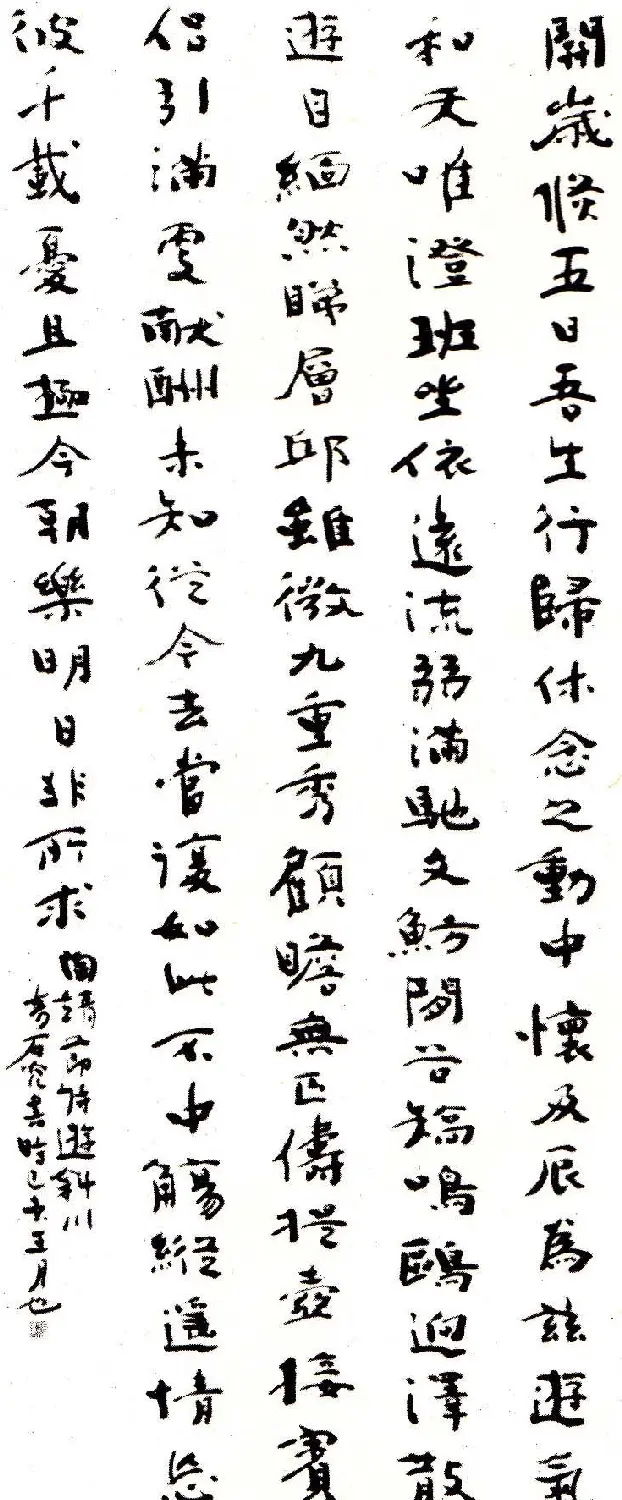 開歲倏五日吾生行歸休念之動中懷及辰為茲遊氣
和天唯澄班坐依遠流弱湍馳文魴閒谷矯鳴鷗迥澤散
遊目緬然睇層邱雖微九重秀顧瞻無匹儔提壺接賓
侶引滿更獻酬未知從今去當復如此不中觴縱遙情忘
彼千載憂且極今朝樂明日非所求
陶靖節詩遊斜川
書時五月也